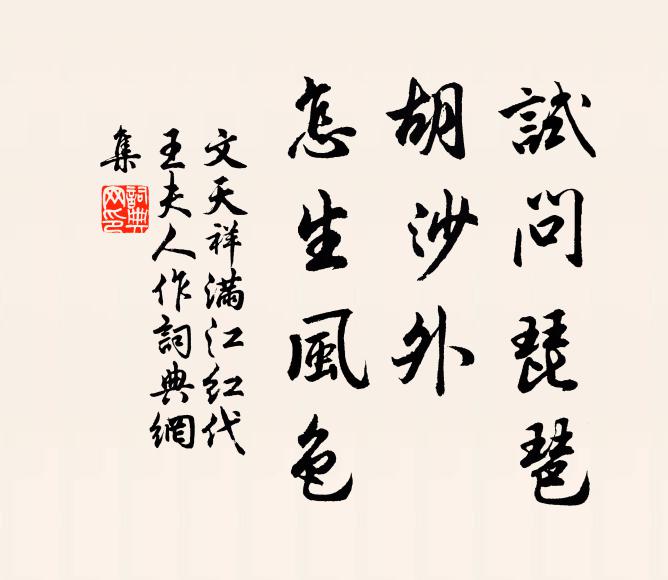 試問琵琶
胡沙外
怎生風色
文天祥滿江紅代
王夫人作詞典網
集
詞典
网印